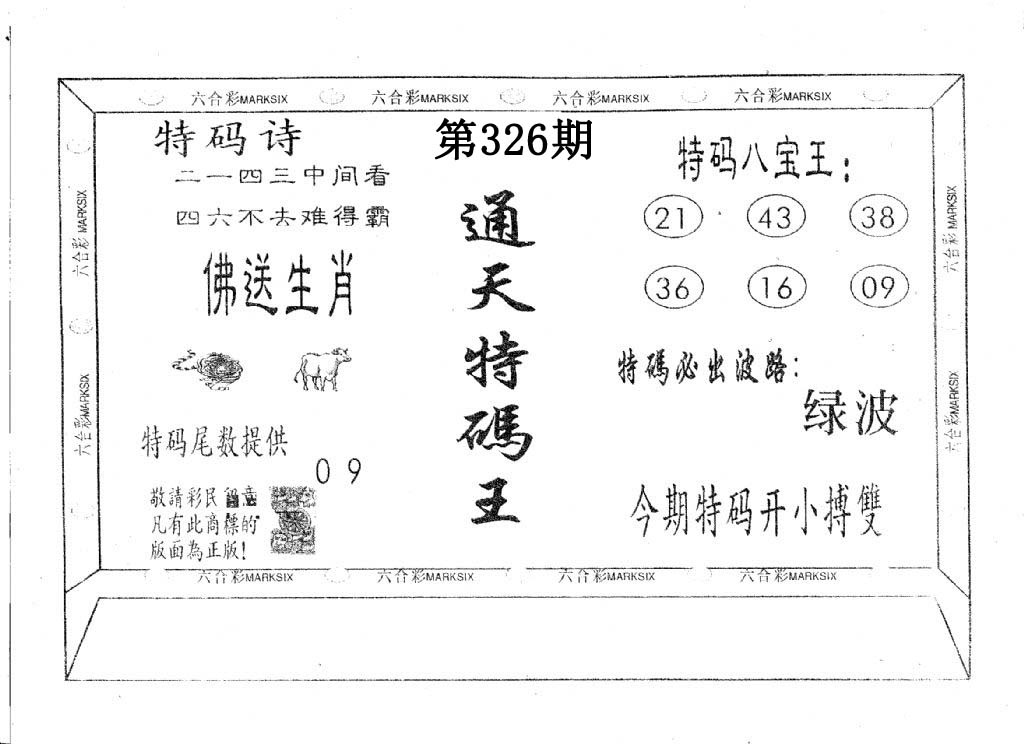 六合彩MARKSIX 六合彩MARKSIX 六合彩MARKSIX 六合彩MARKSIX
六合彩MARKSIX
六合彩MARKSIX
特码诗
二一四三中间看
四六不去难得霸
佛送生肖
特码尾数提供
0 9
敬請彩民留意
凡有此商標的
版面為正版!
第326期
通天特碼王
特码八宝王:
21 43 38
36 16 09
特碼必出波路:
绿波
今期特码开小搏雙
六合彩MARKSIX
六合彩MARKSIX
六合彩MARKSIX 六合彩MARKSIX 六合彩MARKSIX 六合彩MARKSIX